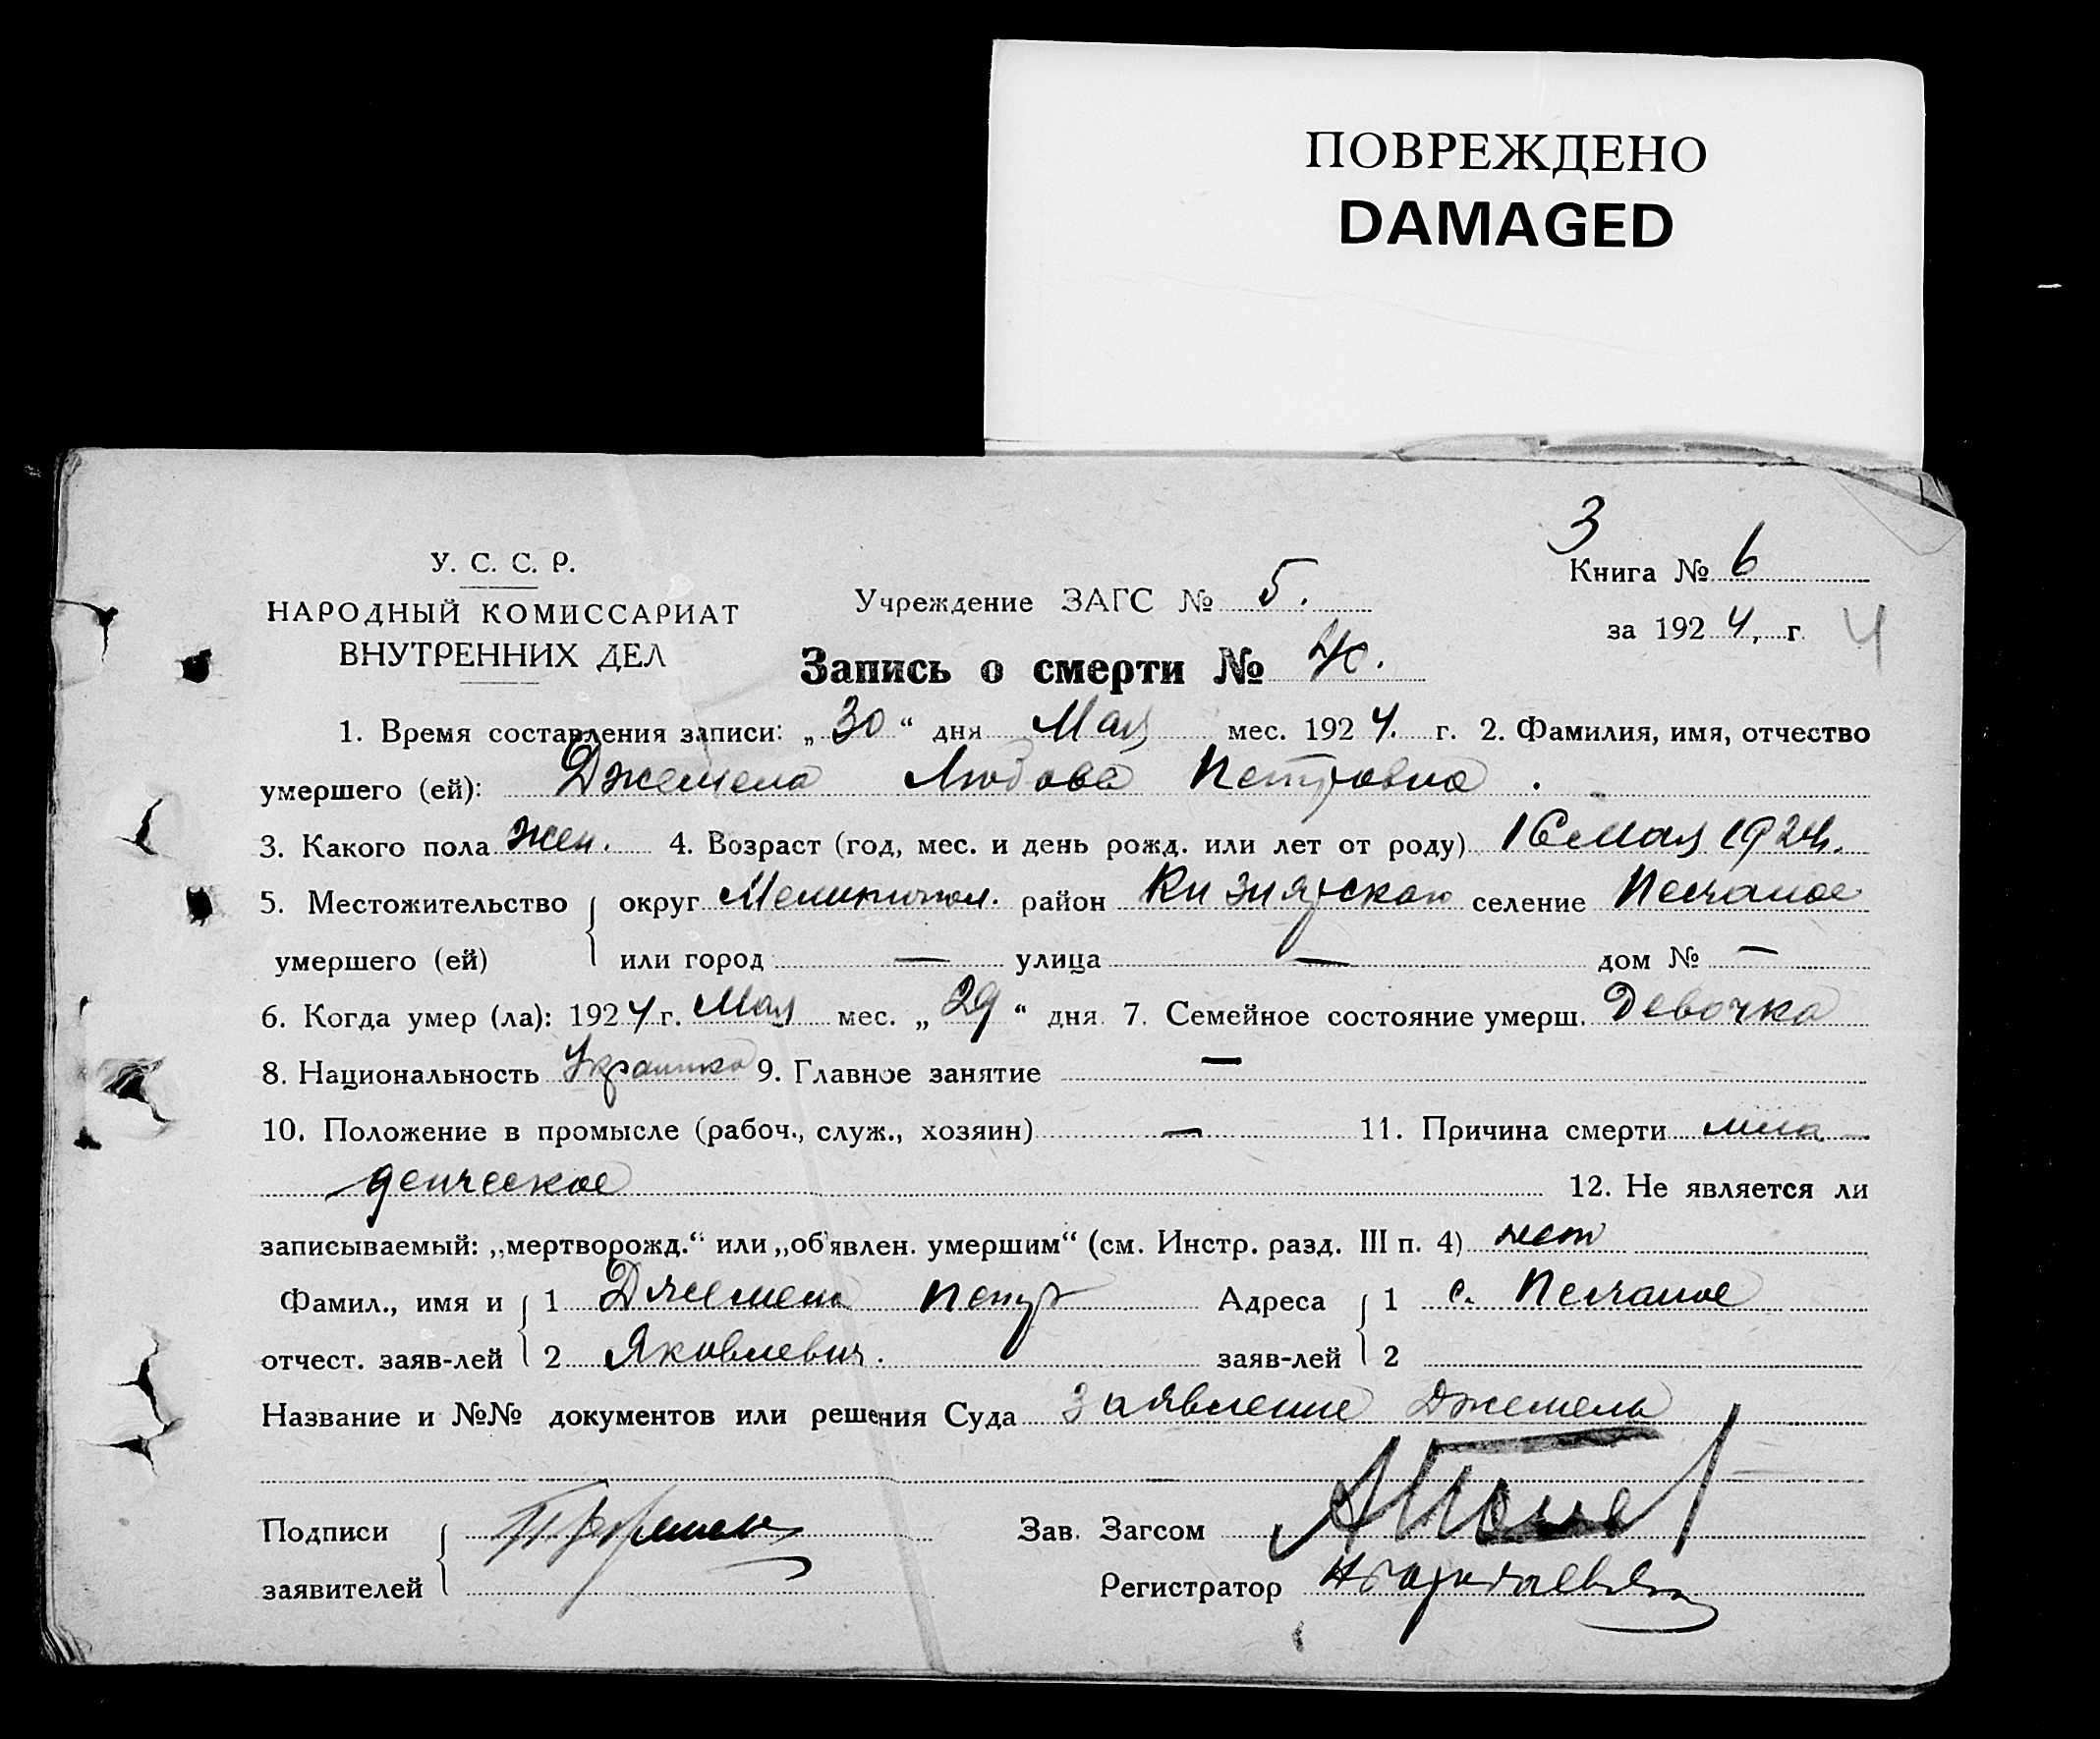 ПОВРЕЖДЕНО
DAMAGED
3
У. С. С. Р.
НАРОДНЫЙ КОМИССАРИАТ
ВНУТРЕННИХ ДЕЛ
Учреждение ЗАГС № 5.
Книга № 6
за 1924, г. 4
Запись о смерти № 40.
1. Время составления записи: „30“ дня Мая мес. 1924. г. 2. Фамилия, имя, отчество
умершего (ей): Джемела Любовь Петровна.
3. Какого пола жен. 4. Возраст (год, мес. и день рожд. или лет от роду) 16 мая 1924.
5. Местожительство округ Мелитопол. район Кизиярского селение Песчаное
умершего (ей) или город — улица — дом № —
6. Когда умер (ла): 1924 г. Мая мес. „29“ дня 7. Семейное состояние умерш. Девочка
8. Национальность Украинка 9. Главное занятие —
10. Положение в промысле (рабоч., служ., хозяин) — 11. Причина смерти мла-
денческое 12. Не является ли
записываемый: „мертворожд.“ или „об'явлен. умершим“ (см. Инстр. разд. III п. 4) нет
Фамил., имя и 1 Джемела Петр Адреса 1 с. Песчаное
отчест. заяв-лей 2 Яковлевич. заяв-лей 2
Название и №№ документов или решения Суда Заявление Джемела
Подписи Зав. Загсом
заявителей Регистратор